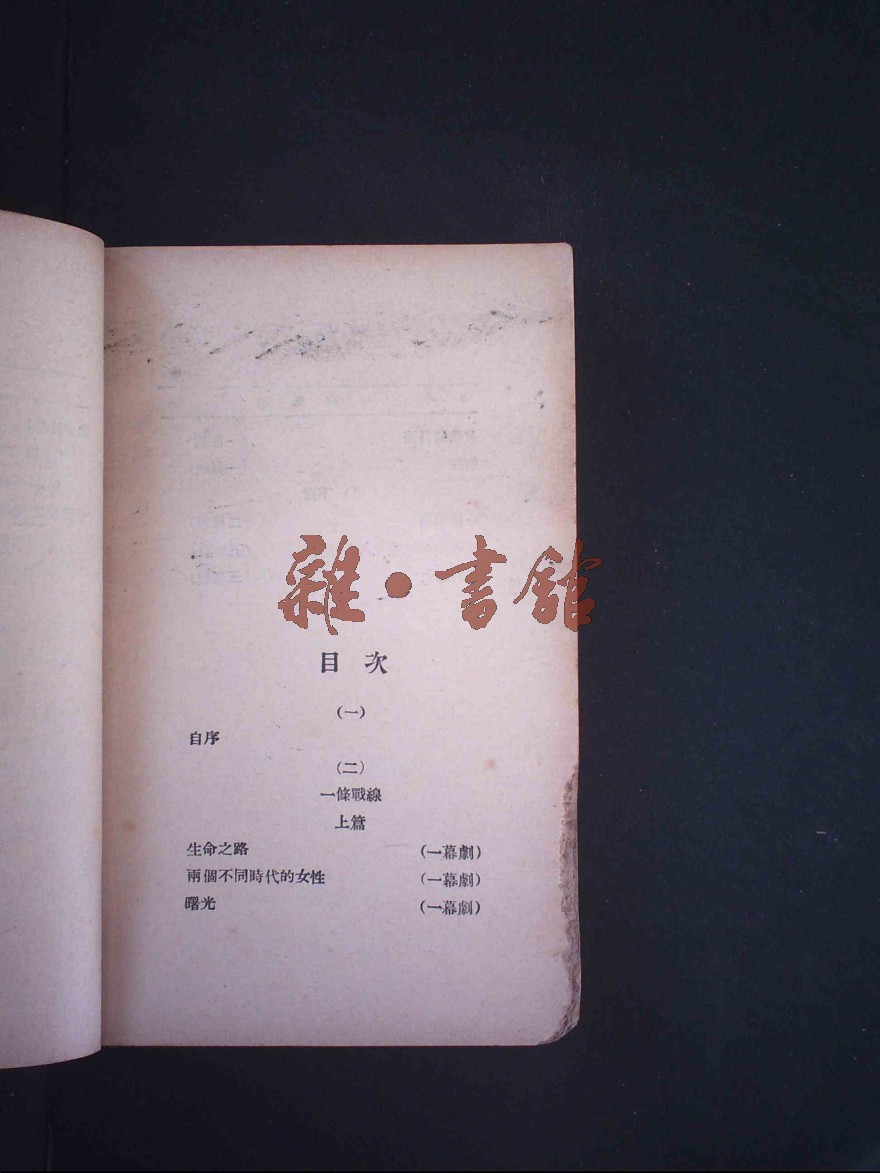 雜·書館
目次
(一)
自序
(二)
一條戰線
上篇
生命之路 (一幕劇)
兩個不同時代的女性 (一幕劇)
曙光 (一幕劇)